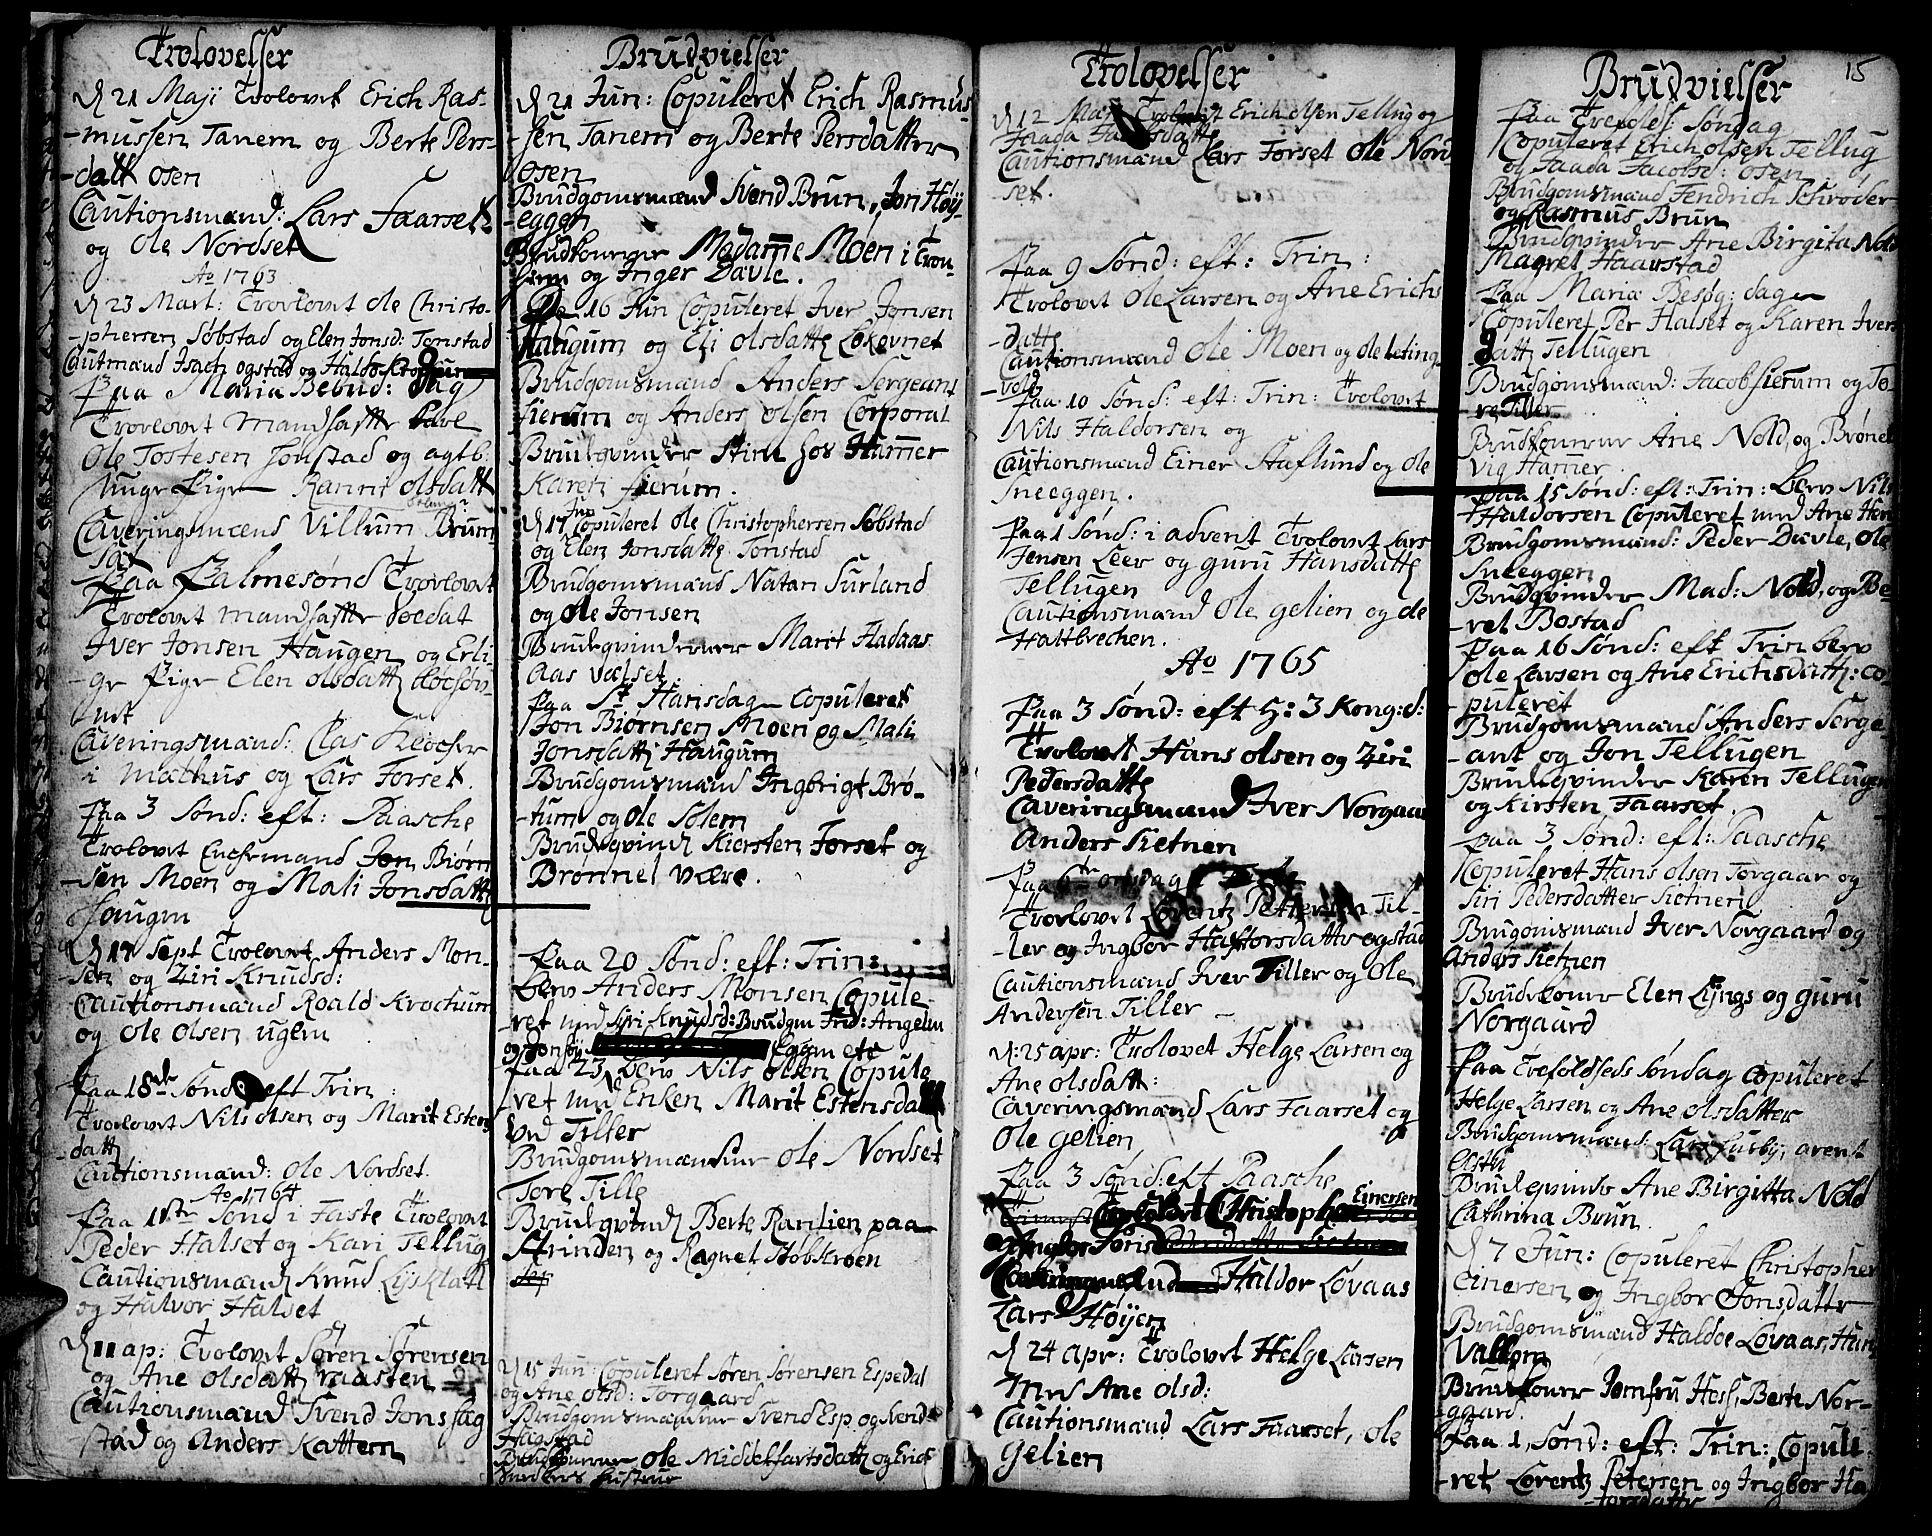 Trolovelser
d 21 Maji Trolovet Erich Ras-
-mussen Tanem og Berte Pers-
-datt osen
Cautionsmænd: Lars Faarset
og Ole Nordset
Ao 1763
d 23 Mart: Trolovet Ole Christo-
-phersen Søbstad og Elen Jonsd: Tonstad
Cautmænd Isach ogstad og Haldo Krochum
Paa Maria Bebud: Dag
Trolovet Mandhafte Karl
Ole Tostesen Jonstad og agtb:
unge Pige Rannie olsdatt
Caveringsmænd Villum Brum
Paa Palmesønd Trolovet
Trolovet Mandhafte Soldat
Iver Jonsen Haugen og Erli-
-ge Pige Elen olsdatt
Caveringsmænd: Clas Klocher
i Mælhus og Lars Forset.
Paa 3 Sønd: eft: Paasche
Trolovet Enchemand Jon Biørn
-sen Moen og Mali Jonsdatt
Haugen
d 17 Sept Trolovet Anders Mon-
sen og Ziri Knudsd:
Cautionsmænd Roald Krochum
og Ole Olsen ugem
Paa 18de Sønd eft Trin:
Trolovet Nils olsen og Marit Estens
datt
Cautionsmænd: Ole Nordset.
Ao 1764
Paa 1ste Sønd i Faste Trolovet
Peder Halset og Kari Tellug
Cautionsmænd Knud Lysklatt
og Halvor Halset
d 11 ap: Trolovet Søren Sørensen
og Ane olsdatt raasten
Cautionsmænd Svend Jons
stad og Anders Kattem
Brudvielser
d 21 Jun: Copuleret Erich Rasmus-
-sen Tanem og Berte Persdatter
osen
Brudgomsmænd Svend Brun, Jon Høy-
-eggen
Brudkoner Madame Moen i Tron-
hem og Inger Davle.
16 Jun Copuleret Iver Jonsen
Haugum og Eli olsdatt
Brudgomsmænd Anders Sergeant
fierum og Anders olsen Corporal
Brudqvinder Stine hos Hammer
Karen fierum.
d 17 Jun Copuleret Ole Christophersen Søbstad
og Elen Jonsdatte Tonstad
Brudgomsmænd Natan Surland
og Ole Jonsen
Brudeqvinder Marit Hadaas
Aas valset.
Paa St Hansdag Copuleret
Jon Biørnsen Moen og Mali
Jonsdatt: Haugum
Brudgomsmænd Ingbrigt Brø-
-tum og Ole Solem
Brudeqvind Kiersten Forset og
Brønnel være.
Paa 20 Sønd: eft: Trin:
blev Anders Monsen Copule-
-ret med Siri Knudsd: Brudgm Frid: Angelin
og Jon
Paa 23 blev Nils olsen Copule
ret med Enken Marit Estensdatt
ved Tiller
Brudgomsmænd Ole Nordset
Tore Tille
Brudeqvind Berte Ranlien paa
Strinden og Ragnel Støbkroen
d 15 Jun: Copuleret Søren Sørensen Espedal
og Ane olsd: Torgaard
Brudgomsmænd Svend Esp og Svend
Hagstad
Brudkoner Ole Middelfartsdatt og Erich
hustrue
Trolovelser
d 12 Maj Trolovet Erich olsen Tellug og
Cautionsmænd Lars Forset Ole Nord
set.
Paa 9 Sønd: eft: Trin:
Trolovet Ole Larsen og Ane Erichs
datte
Cautionsmænd Ole Moen og Ole leting-
-vold
Paa 10 Sønd: eft: Trin: Trolovet
Nils Haldorsen og
Cautionsmænd Einer Aaflund og Ole
Sneeggen.
Paa 1 Sønd: i advent Trolovet Lars
Jensen Leer og guru Hansdatt
Tellugen
Cautionsmænd Ole gelien og Ole
Hattbrechen.
Ao 1765
Paa 3 Sønd: eft H: 3 Kong: d:
Trolovet Hans olsen og Ziri
Pedersdatte
Caveringsmænd Iver Norgaar
Anders Sietnen
Trolovet Lorentz Pettersen Til-
-ler og Ingbor Haldorsdatte ogstad
Cautionsmænd Iver Tiller og Ole
Andersen Tiller
d: 25 apr: Trolovet Helge Larsen og
Ane olsdatt:
Caveringsmænd Lars Faarset og
Ole Gelien
Paa 3 Sønd: eft Paasche
Trolovet Christopher Einersen
og Ingbor
Haldor Lovaas
Lars Høyen
d 24 apr: Trolovet Helge Larsen
Med Ane olsd:
Cautionsmænd Lars Faarset, Ole
Gelien
15
Brudvielser
Paa Trefolds Søndag
Copuleret Erich olsen Tellug
og Jaada Jacobsd: osen
Brudgomsmænd Fendrich Schrøder
og Rasmus Brun
Brudqvinder Ane Birgita Nold
Magrel Haarstad
Paa Mariæ Besøg: dage
Copuleret Per Halset og Karen Ivers
datt Tellugen
Brudgomsmænd: Jacob fierum og To-
re Tiller
Brudkoner Ane Nold, og Brønel
vig Hamer.
Paa 15 Sønd: eft: Trin: blev Nils
Haldorsen Copuleret med Ane Hen
Brudgomsmænd: Peder Davle, Ole
Sneeggen
Brudqvinder Mad: Nold, og Be-
-ret Bostad
Paa 16 Sønd: eft Trin blev
Ole Larsen og Ane Erichsdatt: co-
-puleret
Brudgomsmænd Anders Serge
-ant og Jon Tellugen
Brudeqvinder Karen Tellugen
og Kirsten Faarset.
Paa 3 Sønd: eft: Paasche
Copuleret Hans olsen Torgaar og
Siri Pedersdatter Sietnen
Brugomsmænd Iver Norgaard og
Anders Sietnen
Brudekoner Elen Lyngs og guru
Norgaard
Paa Trefoldheds Søndag Copuleret
Helge Larsen og Ane olsdatter
Brudgomsmænd: Lars Lusby, arent
Brudeqvinder Ane Birgitta Nold
Cathrina Brun.
d 7 Jun: Copuleret Christopher
Einersen og Ingbor Jonsdatte
Brudgomsmænd Haldoe Lovaas, Hun
Brudkoner Jomfru Hess Berte Nor-
-gaard.
Paa 1, Sønd: eft: Trin: Copule
-ret Lorentz Petersen og Ingbor Ha
-torsdatte